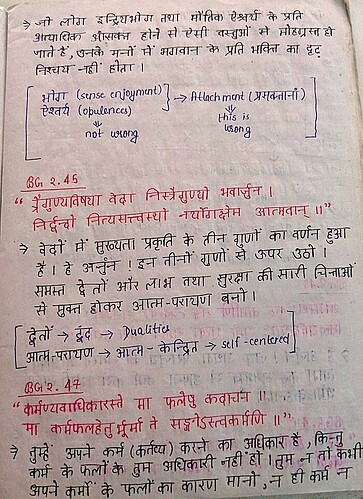 → जो लोग इन्द्रियभोग तथा भौतिक ऐश्वर्य के प्रति
अत्यधिक आसक्त होने से ऐसी वस्तुओं से मोहग्रस्त हो
जाते हैं, उनके मनों में भगवान के प्रति भक्ति का दृढ़
निश्चय नहीं होता ।
भोग (sense enjoyment) → Attachment (प्रसक्तानां)
ऐश्वर्य (opulences)
⇓ not wrong
⇓ this is wrong
BG: 2.45
" त्रैगुण्यविषया वेदा निस्त्रैगुण्यो भवार्जुन ।
निर्द्वन्द्वो नित्यसत्त्वस्थो नर्योगक्षेम आत्मवान् ॥"
→ वेदों में मुख्यतया प्रकृति के तीन गुणों का वर्णन हुआ
है । हे अर्जुन ! इन तीनों गुणों से ऊपर उठो ।
समस्त द्वैतों और लाभ तथा सुरक्षा की सारी चिन्ताओं
से मुक्त होकर आत्म-परायण बनो ।
द्वैतों → द्वंद्व → Dualities
आत्म-परायण → आत्म - केन्द्रित → self-centered
BG: 2.47
" कर्मण्यवाधिकारस्ते मा फलेषु कदाचन ।
मा कर्मफलहेतुर्भूर्मा ते सङ्गोऽस्त्वकर्मणि ॥ "
→ तुम्हें अपने कर्म (कर्तव्य) करने का अधिकार है, किन्तु
कर्म के फलों के तुम अधिकारी नहीं हो । तुम न तो कभी
अपने कर्मों के फलों का कारण मानो, न ही कर्म न